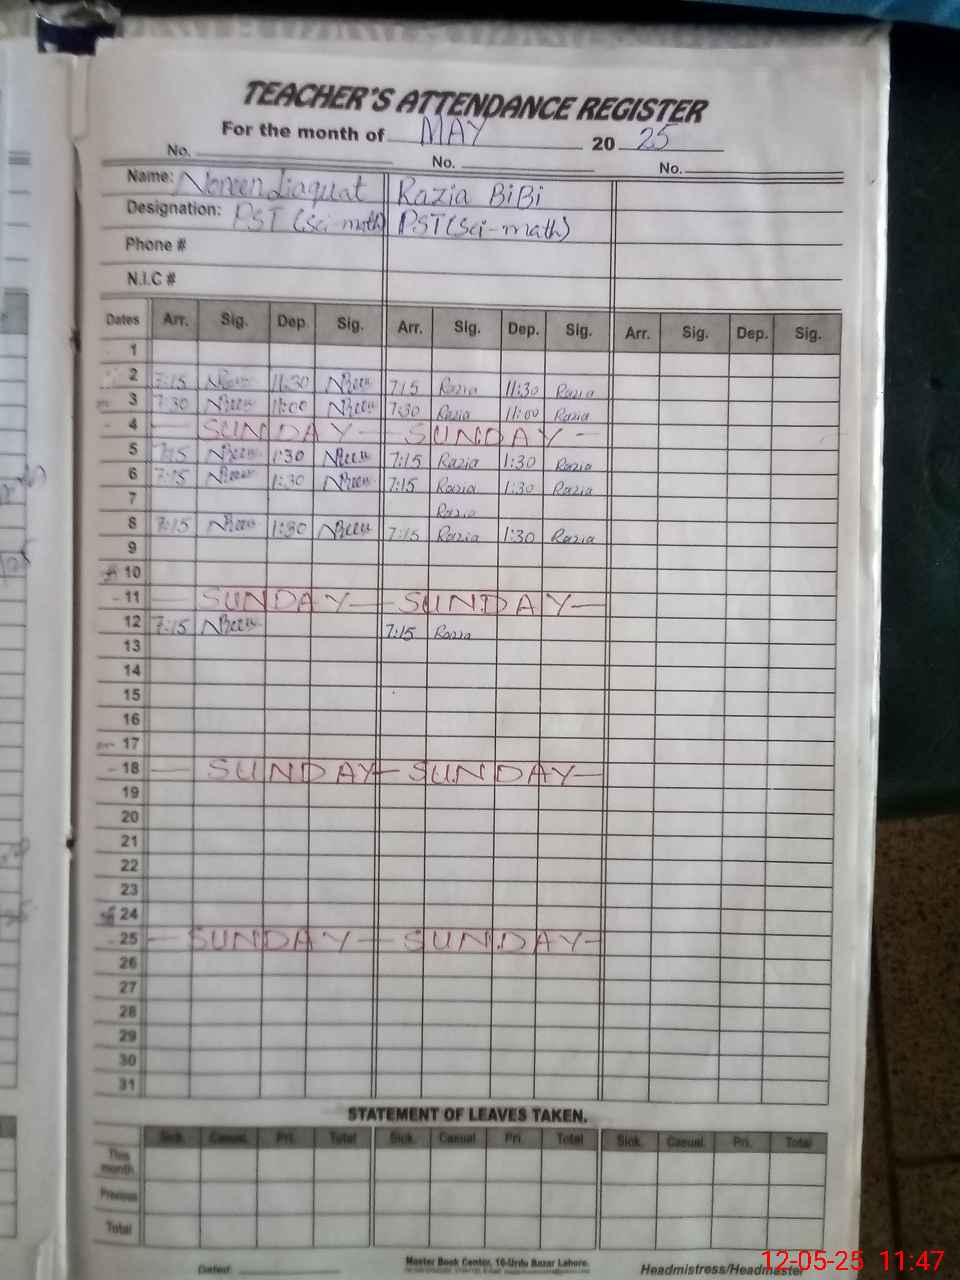 TEACHER'S ATTENDANCE REGISTER
For the month of MAY 20 25
No. No. No.
Name: Noreen Liaquat Razia BiBi
Designation: PST (Sci-math) PST (Sci-math)
Phone #
N.I.C #
Dates Arr. Sig. Dep. Sig. Arr. Sig. Dep. Sig. Arr. Sig. Dep. Sig.
1
2 7:15 11:30 7:15 Razia 11:30 Razia
3 7:30 11:00 7:30 Razia 11:00 Razia
4 — SUNDAY — SUNDAY —
5 7:15 1:30 7:15 Razia 1:30 Razia
6 7:15 1:30 7:15 Razia 1:30 Razia
7 Razia
8 7:15 1:30 7:15 Razia 1:30 Razia
9
10
11 — SUNDAY — SUNDAY —
12 7:15 7:15 Razia
13
14
15
16
17
18 — SUNDAY — SUNDAY —
19
20
21
22
23
24
25 — SUNDAY — SUNDAY —
26
27
28
29
30
31
STATEMENT OF LEAVES TAKEN.
Sick. Casual. Pri. Total Sick. Casual Pri. Total Sick. Casual. Pri. Total
This month
Previous
Total
Dated: Master Book Center, 10-Urdu Bazar Lahore. Headmistress/Headmaster
12-05-25 11:47